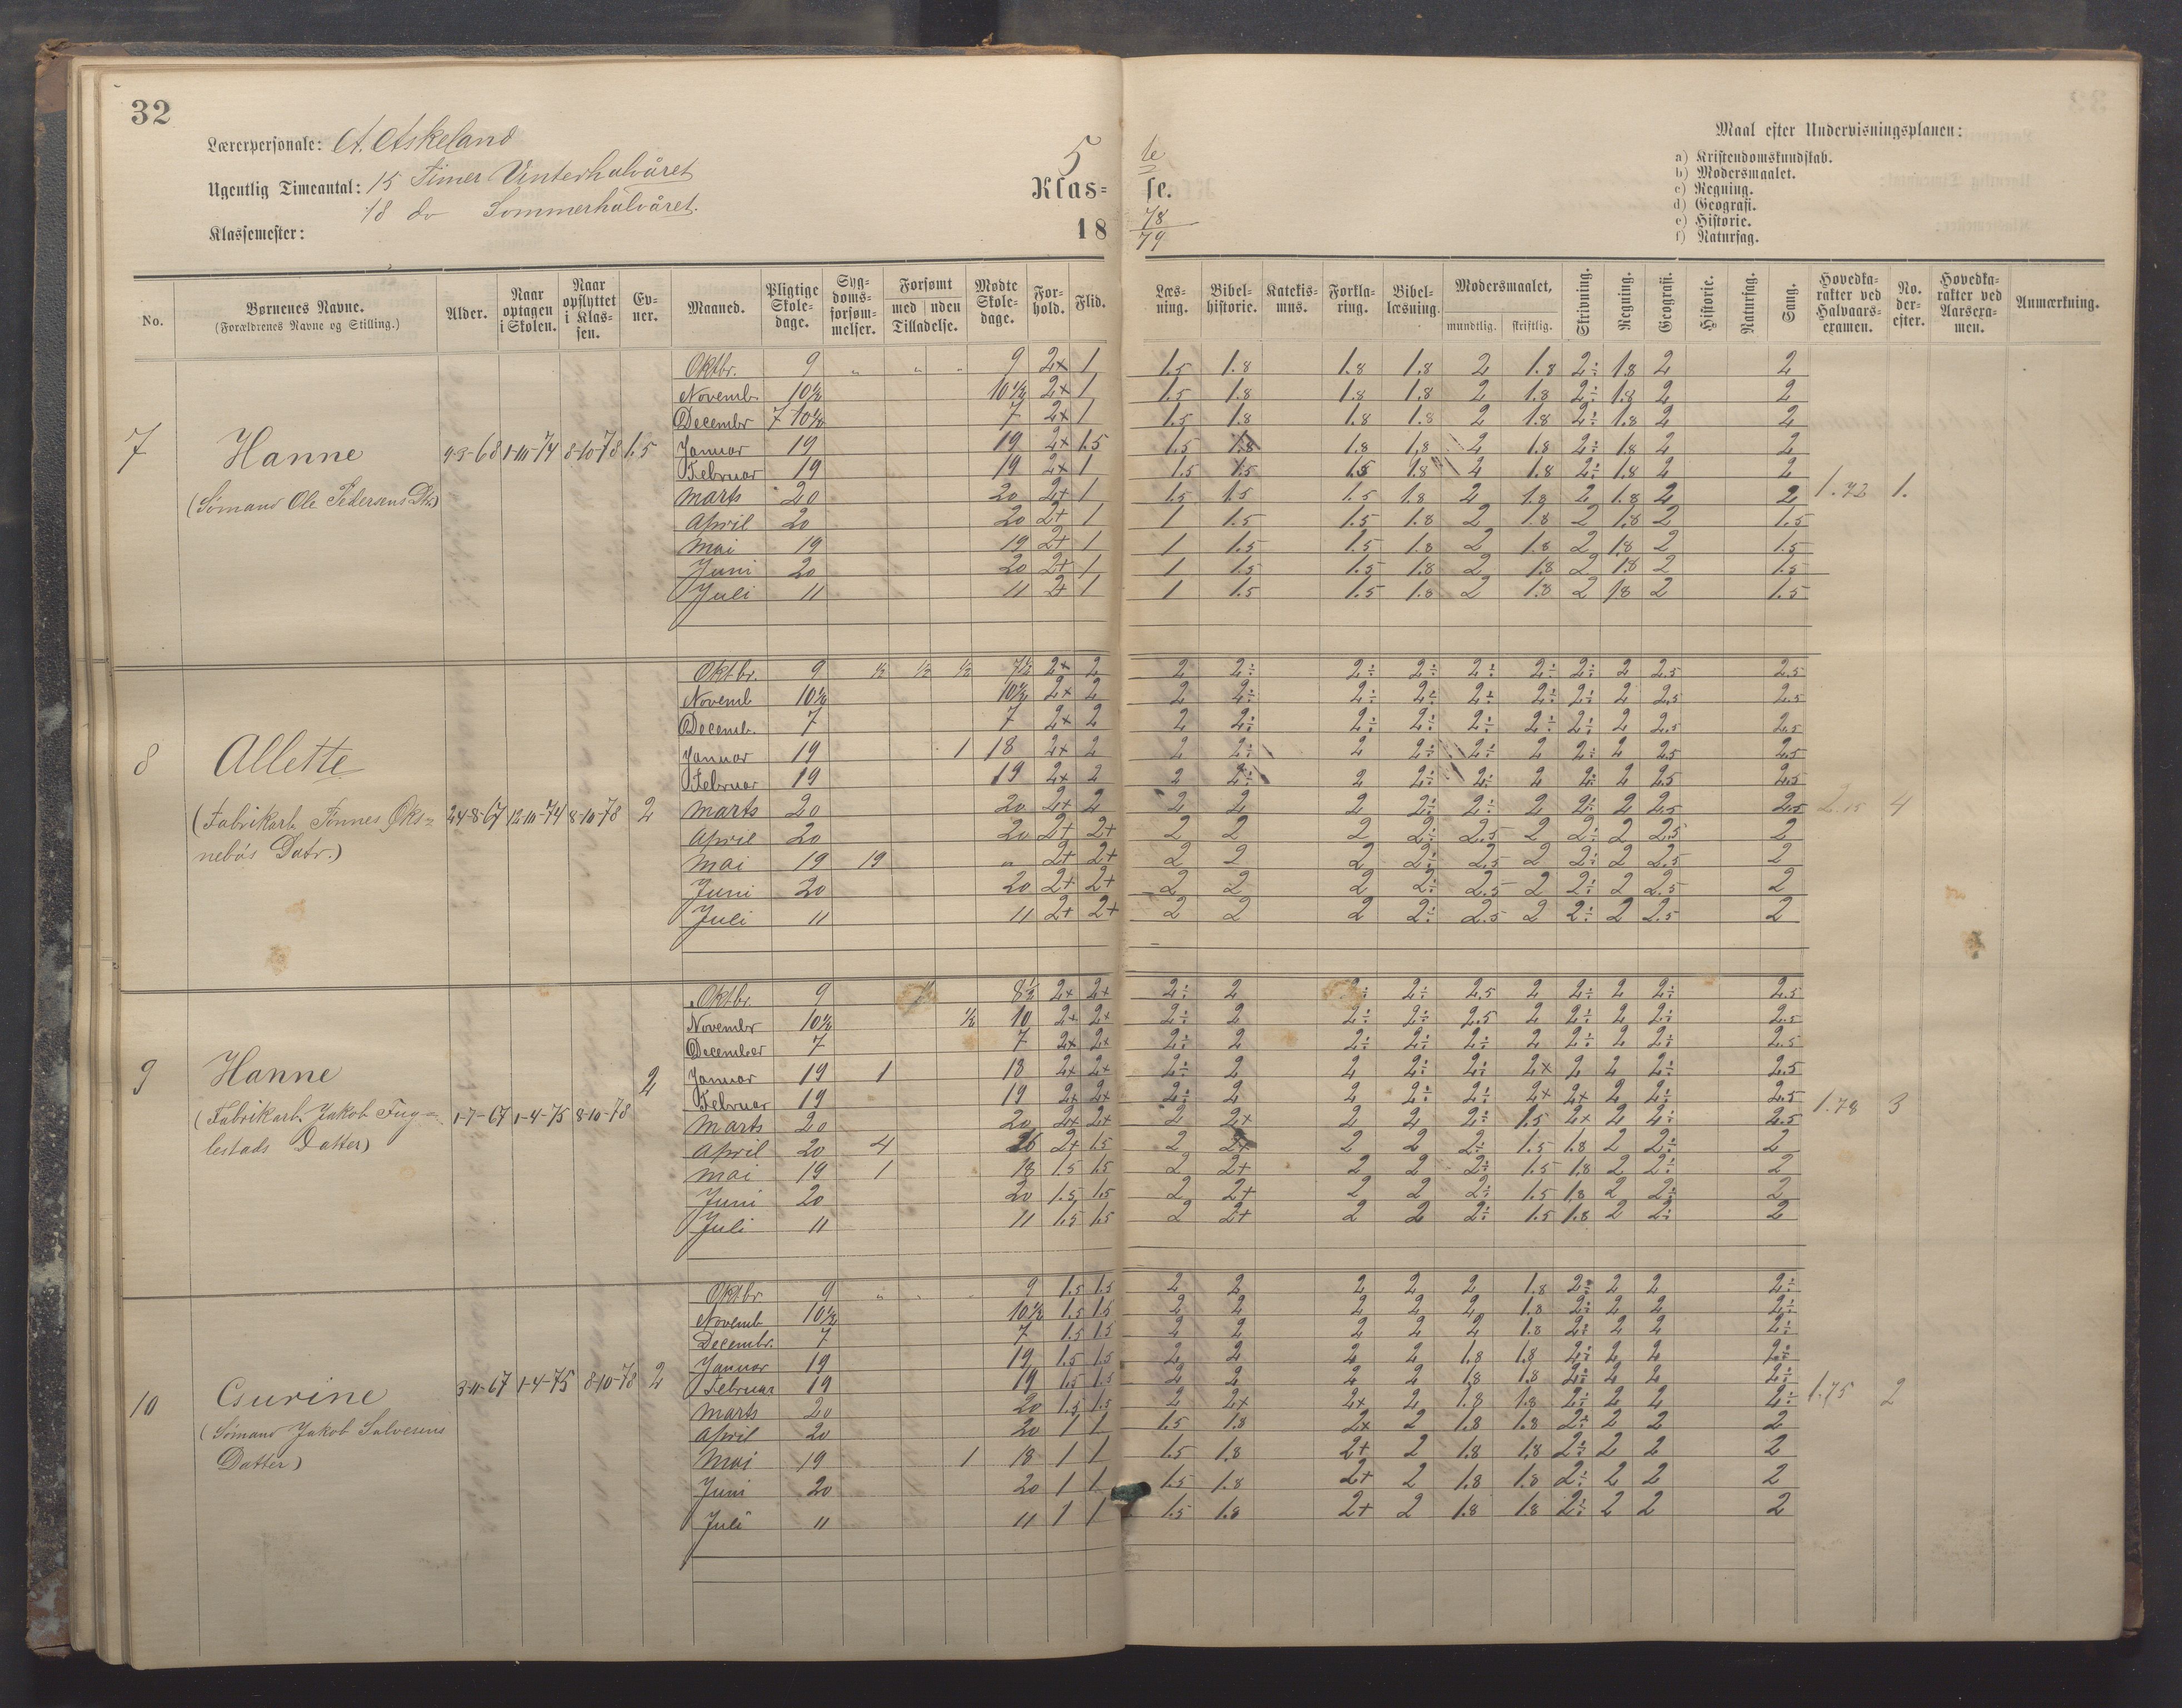 32
Lærerpersonale: A. Askeland
Ugentlig Timeantal: 15 Timer Vinterhalvåret
18 do Sommerhalvåret.
Klassemester:
5 te
Klas= se.
18 78/79
Maal efter Undervisningsplanen:
a) Kristendomskundskab.
b) Modersmaalet.
c) Regning.
d) Geografi.
e) Historie.
f) Naturfag.
No. | Børnenes Navne. (Forældrenes Navne og Stilling.) | Alder. | Naar optagen i Skolen. | Naar opflyttet i Klassen. | Evner. | Maaned. | Pligtige Skoledage. | Sygdomsforsømmelser. | Forsømt med / uden Tilladelse. | Mødte Skoledage. | Forhold. | Flid. | Læsning. | Bibelhistorie. | Katekismus. | Forklaring. | Bibellæsning. | Modersmaalet, mundtlig. skriftlig. | Skrivning. | Regning. | Geografi. | Historie. | Naturfag. | Sang. | Hovedkarakter ved Halvaarsexamen. | No. derefter. | Hovedkarakter ved Aarsexamen. | Anmærkning.
7 Hanne 1-10-74 8-10-78 1.5
(Sømand Ole Pedersens Dtr.)
Oktbr. 9 " " " 9 2+ 1 1.5 1.8 1.8 1.8 2 1.8 2÷ 1.8 2 2
Novemb. 10½ 10½ 2+ 1 1.5 1.8 1.8 1.8 2 1.8 2÷ 1.8 2 2
Decembr 7 7 2+ 1 1.5 1.8 1.8 1.8 2 1.8 2÷ 1.8 2 2
Januar 19 19 2+ 1.5 1.5 1.8 1.8 1.8 2 1.8 2÷ 1.8 2 2
Februar 19 19 2+ 1 1.5 1.5 1.5 1.8 2 1.8 2÷ 1.8 2 2
Marts 20 20 2+ 1 1.5 1.5 1.5 1.8 2 1.8 2 1.8 2 2 1.72 1.
April 20 20 2+ 1 1 1.5 1.5 1.8 2 1.8 2 1.8 2 1.5
Mai 19 19 2+ 1 1 1.5 1.5 1.8 2 1.8 2 1.8 2 1.5
Juni 20 20 2+ 1 1 1.5 1.5 1.8 2 1.8 2 1.8 2 1.5
Juli 11 11 2+ 1 1 1.5 1.5 1.8 2 1.8 2 1.8 2 1.5
8 Allette 24-8-67 12-10-74 8-10-78 2
(Fabrikarb. Tønnes Øks=
nebøs Datr.)
Oktbr. 9 ½ ½ ½ 7½ 2+ 2 2 2÷ 2÷ 2÷ 2÷ 2÷ 2÷ 2 2.5 2.5
Novemb 10½ 10½ 2+ 2 2 2÷ 2÷ 2÷ 2÷ 2÷ 2÷ 2 2.5 2.5
Decemb. 7 7 2+ 2 2 2÷ 2÷ 2÷ 2÷ 2÷ 2÷ 2 2.5 2.5
Januar 19 1 18 2+ 2 2 2÷ 2 2÷ 2÷ 2 2÷ 2 2.5 2.5
Februar 19 19 2+ 2 2 2÷ 2 2÷ 2÷ 2 2÷ 2 2.5 2.5
Marts 20 20 2+ 2 2 2 2 2÷ 2÷ 2 2÷ 2 2.5 2.5 2.15 4
April 20 20 2+ 2+ 2 2 2 2÷ 2.5 2 2÷ 2 2.5 2
Mai 19 19 " 2+ 2+ 2 2 2 2÷ 2.5 2 2÷ 2 2.5 2
Juni 20 20 2+ 2+ 2 2 2 2÷ 2.5 2 2÷ 2 2.5 2
Juli 11 11 2+ 2+ 2 2 2 2÷ 2.5 2 2÷ 2 2.5 2
9 Hanne 1-7-67 1-4-75 8-10-78 2
(Fabrikarb. Jakob Fug=
lestads Datter)
Oktbr. 9 ½ 8½ 2+ 2+ 2÷ 2 2÷ 2÷ 2.5 2 2÷ 2 2÷ 2.5
Novembr 10½ ½ 10 2+ 2+ 2÷ 2 2÷ 2÷ 2.5 2 2÷ 2 2÷ 2.5
December 7 7 2+ 2+ 2÷ 2 2÷ 2÷ 2÷ 2 2÷ 2 2÷ 2.5
Januar 19 1 18 2+ 2+ 2÷ 2 2 2÷ 2÷ 2+ 2 2 2÷ 2.5
Februar 19 19 2+ 2+ 2÷ 2 2 2÷ 2÷ 2+ 2+ 2 2÷ 2.5
Marts 20 20 2+ 2+ 2 2+ 2 2 2÷ 1.5 2+ 2 2÷ 2.5 1.78 3
April 20 4 16 2+ 1.5 2 2+ 2 2 2÷ 1.5 1.8 2 2÷ 2
Mai 19 1 18 1.5 1.5 2 2+ 2 2 2÷ 1.5 1.8 2 2÷ 2
Juni 20 20 1.5 1.5 2 2+ 2 2 2÷ 1.5 1.8 2 2÷ 2
Juli 11 11 1.5 1.5 2 2+ 2 2 2÷ 1.5 1.8 2 2÷ 2
10 Gurine 3-11-67 1-4-75 8-10-78 2
(Sømand Jakob Salvesens
Datter)
Oktbr 9 " " " 9 1.5 1.5 2 2 2 2 2 1.8 2÷ 2 2 2÷
Novemb 10½ 10½ 1.5 1.5 2 2 2 2 2 1.8 2÷ 2 2 2÷
Decembr. 7 7 1.5 1.5 2 2 2 2 2 1.8 2÷ 2 2 2÷
Januar 19 19 1.5 1.5 2 2 2 2 1.8 1.8 2÷ 2 2 2÷
Februar 19 19 1.5 1.5 2 2 2 2 1.8 1.8 2÷ 2 2 2÷
Marts 20 20 1.5 1.5 2 2+ 2+ 2 1.8 1.8 2÷ 2 2 2÷ 1.75 2
April 20 20 1 1 1.5 1.8 2+ 2 1.8 1.8 2÷ 2 2 2
Mai 19 1 18 1 1 1.5 1.8 2+ 2 1.8 1.8 2÷ 2 2 2
Juni 20 20 1 1 1.5 1.8 2+ 2 1.8 1.8 2÷ 2 2 2
Juli 11 11 1 1 1.5 1.8 2+ 2 1.8 1.8 2÷ 2 2 2